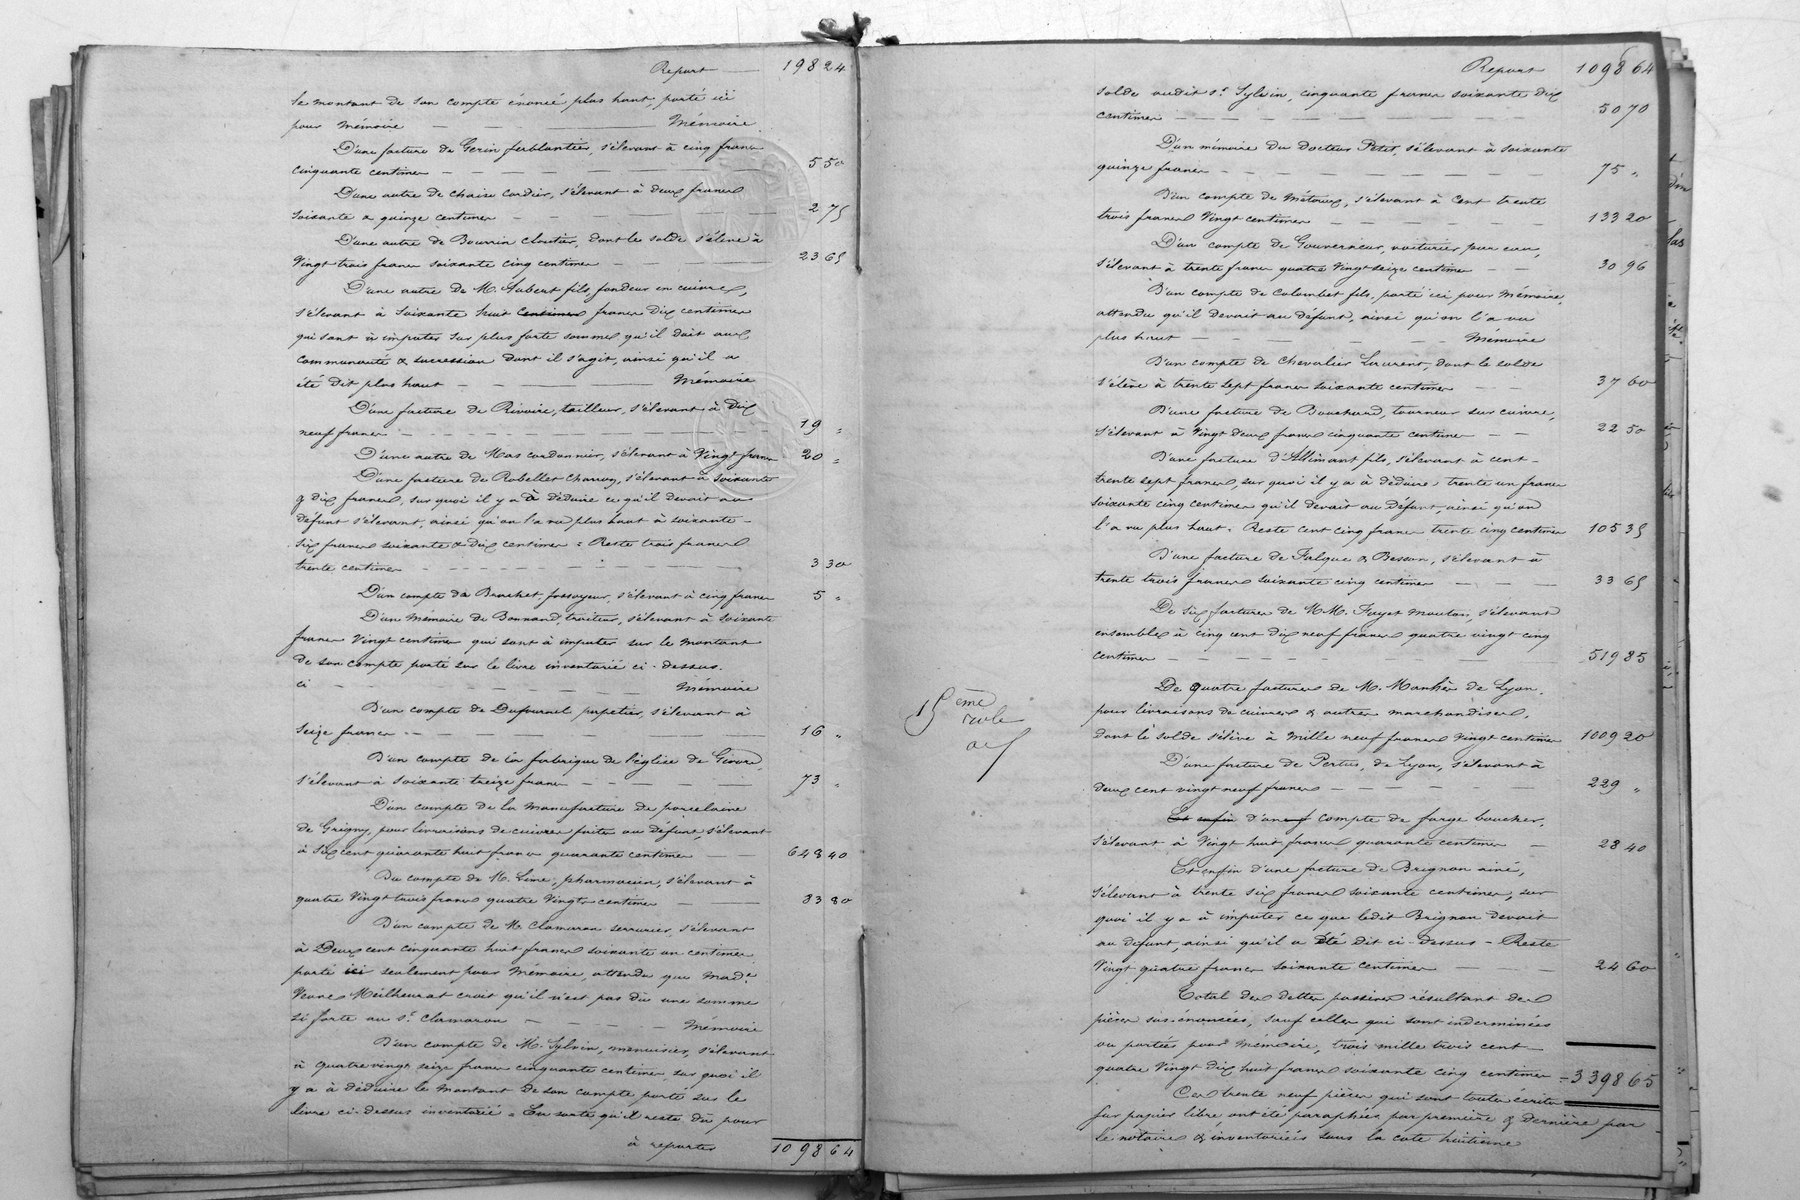 Report — 198 24
le montant de son compte énoncé plus haut, porté ici
pour mémoire — — — Mémoire
D'une facture de Gerin ferblantier, s'élevant à cinq francs
cinquante centimes — — — 5 50
D'une autre de Chaize cordier, s'élevant à deux francs
soixante & quinze centimes — — — 2 75
D'une autre de Bourrin cloutier, dont le solde s'élève à
Vingt trois francs soixante cinq centimes — — — 23 65
D'une autre de M. Aubert fils, fondeur en cuivre,
s'élevant à soixante huit centimes francs dix centimes
qui sont à imputer sur plus forte somme qu'il doit aux
communauté & succession dont il s'agit, ainsi qu'il a
été dit plus haut — — — Mémoire
D'une facture de Rivoire, tailleur, s'élevant à dix
neuf francs — — — 19 "
D'une autre de Mas cordonnier, s'élevant à Vingt francs 20 "
D'une facture de Robellet charron, s'élevant à soixante
& dix francs, sur quoi il y a à déduire ce qu'il devait au
défunt s'élevant, ainsi qu'on l'a vu plus haut à soixante-
six francs soixante & dix centimes = Reste trois francs
trente centimes — — — 3 30
D'un compte de Brochet, fossoyeur, s'élevant à cinq francs 5 "
D'un Mémoire de Bonnand, traiteur, s'élevant à soixante
francs Vingt centimes qui sont à imputer sur le montant
de son compte porté sur le livre inventorié ci-dessus.
ci — — — Mémoire
D'un compte de Dufournel papetier, s'élevant à
seize francs — — — 16 "
D'un compte de la fabrique de l'église de Givors,
s'élevant à soixante treize francs — — — 73 "
D'un compte de la manufacture de porcelaine
de Grigny, pour livraisons de cuivres faites au défunt, s'élevant
à six cent quarante huit francs quarante centimes — — 648 40
Du compte de M. Lime, pharmacien, s'élevant à
quatre Vingt trois francs quatre Vingts centimes — — 83 80
D'un compte de M. Clamaron serrurier, s'élevant
à Deux cent cinquante huit francs soixante un centimes,
porté ici seulement pour Mémoire, attendu que Made
Veuve Meilheurat croit qu'il n'est pas dû une somme
si forte au sr. Clamaron — — — Mémoire
D'un compte de M. Sylvin, menuisier, s'élevant
à quatre vingt seize francs cinquante centimes, sur quoi il
y a à déduire le montant de son compte porté sur le
livre ci-dessus inventorié = En sorte qu'il reste dû pour
à reporter 1098 64
Report 1098 64
solde audit sr. Sylvin, cinquante francs soixante dix
centimes — — — 50 70
D'un mémoire du Docteur Petit, s'élevant à soixante
quinze francs — — — 75 "
D'un compte de s'élevant à Cent trente
trois francs Vingt centimes — — — 133 20
D'un compte de Gouverneur, voiturier par eau,
s'élevant à trente francs quatre Vingt seize centimes — — 30 96
D'un compte de Colombet fils, porté ici pour Mémoire,
attendu qu'il devait au défunt, ainsi qu'on l'a vu
plus haut — — — Mémoire
D'un compte de Chevalier Laurent, dont le solde
s'élève à trente sept francs soixante centimes — — 37 60
D'une facture de Bouchard, tourneur sur cuivre,
s'élevant à Vingt Deux francs cinquante centimes — — 22 50
D'une facture d'Allimant fils, s'élevant à cent-
trente sept francs, sur quoi il y a à déduire trente un francs
soixante cinq centimes qu'il devait au Défunt, ainsi qu'on
l'a vu plus haut = Reste cent cinq francs trente cinq centimes 105 35
D'une facture de Falque & Besson, s'élevant à
trente trois francs soixante cinq centimes — — — 33 65
De six factures de MM. Fayet Mouton, s'élevant
ensembles à cinq cent dix neuf francs quatre vingt cinq
centimes — — — 519 85
15ème
rôle
De Quatre factures de M. Manhès de Lyon.
pour livraisons de cuivres & autres marchandises,
dont le solde s'élève à Mille neuf francs Vingt centimes 1009 20
D'une facture de Pertus, de Lyon, s'élevant à
deux cent vingt neuf francs — — — 229 "
Et enfin d'un compte de farge boucher,
s'élevant à Vingt huit francs quarante centimes — 28 40
Et enfin d'une facture de Brignon ainé,
s'élevant à trente six francs soixante centimes, sur
quoi il y a à imputer ce que ledit Brignon devait
au défunt, ainsi qu'il a été dit ci-dessus - Reste
Vingt quatre francs soixante centimes — — 24 60
Total des dettes passives résultant des
pièces sus-énoncées, sauf celles qui sont inderminées
ou portées pour mémoire, trois mille trois cent-
quatre Vingt dix huit francs soixante cinq centimes = 3398 65
Ces trente neuf pièces qui sont toutes écrites
sur papier libre, ont été paraphées par première & dernière par
le notaire & inventoriées sous la cote huitième